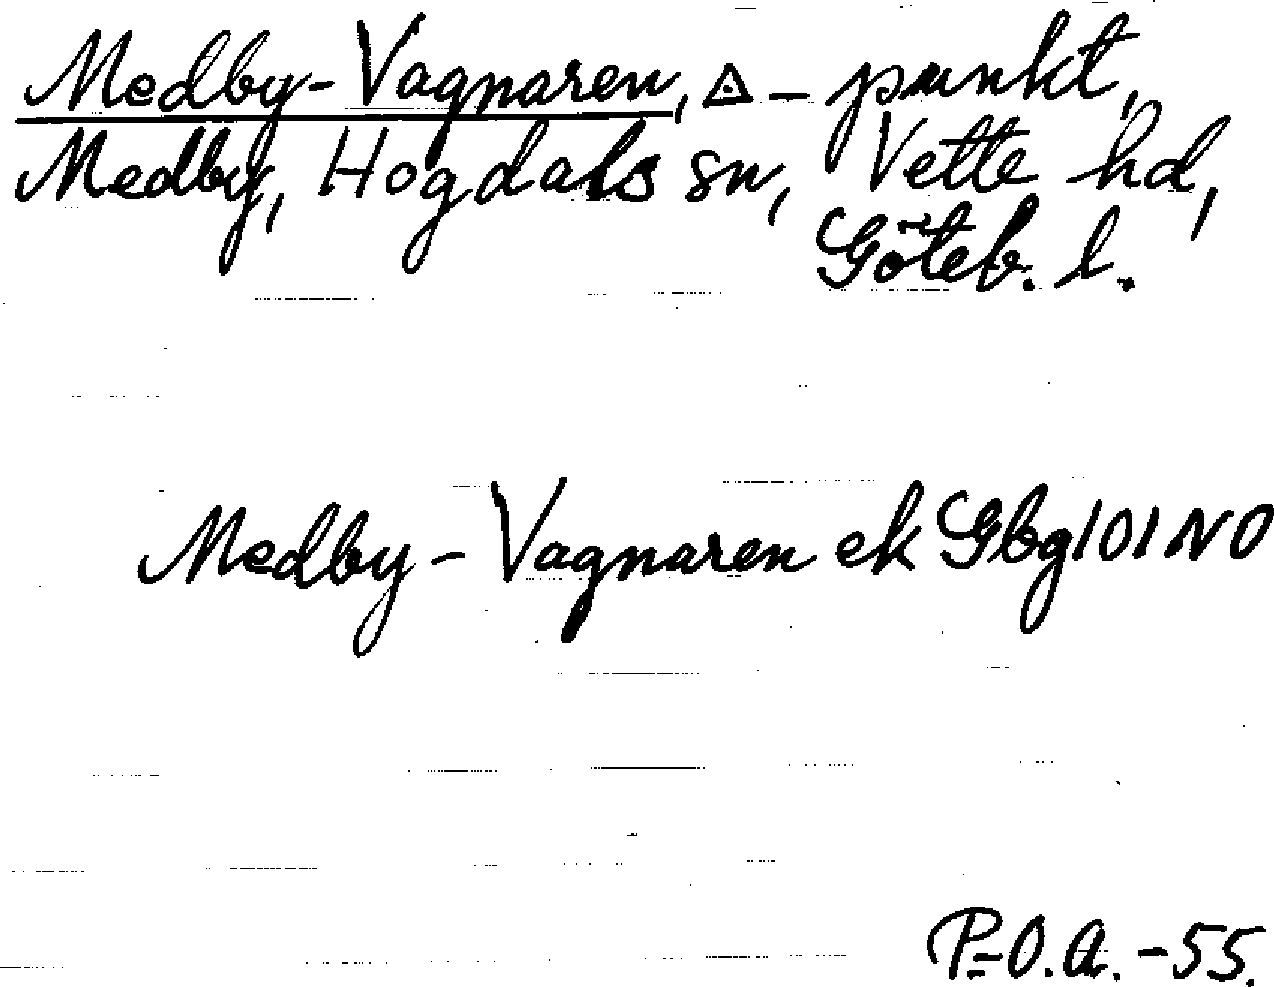 Medby-Vagnaren, ◬ - punkt,
Medby, Hogdals sn, Vette hd,
Göteb. l.
Medby - Vagnaren ek Gbg 101 NO
P-O.A. -55.